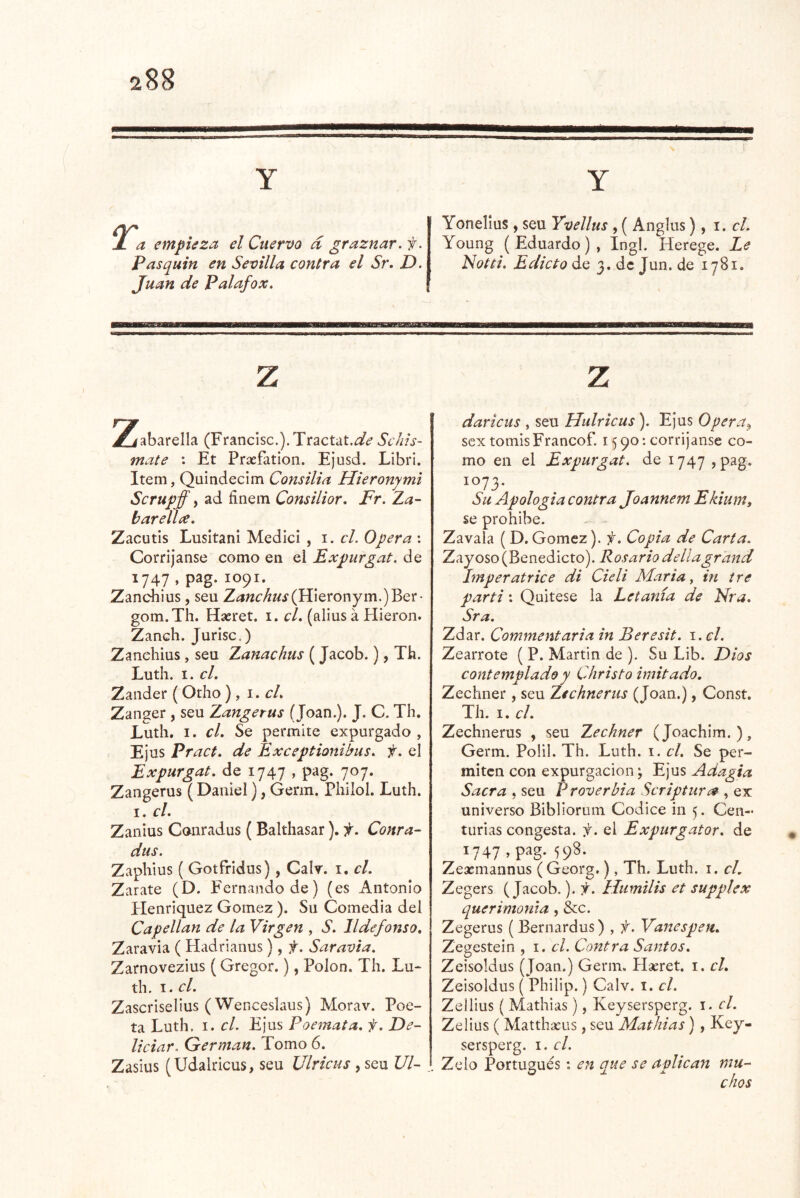 288
Y
Ya empieza el Cuervo á graznar. ℣.
Pasquin en Sevilla contra el Sr. D.
Juan de Palafox.
Y
Yonelius, seu Yvellus, ( Anglus ), 1. cl.
Young ( Eduardo ), Ingl. Herege. Le
Notti. Edicto de 3. de Jun. de 1781.
Z
Zabarella (Francisc.). Tractat. de Schis-
mate : Et Præfation. Ejusd. Libri.
Item, Quindecim Consilia Hieronymi
Scrupff, ad finem Consilior. Fr. Za-
barellæ.
Zacutis Lusitani Medici , 1. cl. Opera :
Corrijanse como en el Expurgat. de
1747 , pag. 1091.
Zanchius , seu Zanchus (Hieronym.) Ber-
gom. Th. Hæret. 1. cl. (alius à Hieron.
Zanch. Jurisc.)
Zanchius , seu Zanachus ( Jacob. ) , Th.
Luth. 1. cl.
Zander ( Otho ) , 1. cl.
Zanger , seu Zangerus (Joan.). J. C. Th.
Luth. 1. cl. Se permite expurgado ,
Ejus Pract. de Exceptionibus. ℣. el
Expurgat. de 1747 , pag. 707.
Zangerus ( Daniel ) , Germ. Philol. Luth.
1. cl.
Zanius Conradus ( Balthasar ). ℣. Conra-
dus.
Zaphius ( Gotfridus) , Calv. 1. cl.
Zarate (D. Fernando de) (es Antonio
Henriquez Gomez ). Su Comedia del
Capellan de la Virgen , S. Ildefonso.
Zaravia ( Hadrianus ) , ℣. Saravia.
Zarnovezius ( Gregor. ) , Polon. Th. Lu-
th. 1. cl.
Zascriselius (Wenceslaus) Morav. Poe-
ta Luth. 1. cl. Ejus Poemata. ℣. De-
liciar. German. Tomo 6.
Zasius (Udalricus, seu Ulricus , seu Ul-
Z
daricus , seu Hulricus ). Ejus Opera,
sex tomis Francof. 1590 : corrijanse co-
mo en el Expurgat. de 1747 , pag.
1073.
Su Apologia contra Joannem Ekium,
se prohibe.
Zavala ( D. Gomez ). ℣. Copia de Carta.
Zayoso (Benedicto). Rosario della grand
Imperatrice di Cieli Maria, in tre
parti : Quitese la Letanía de Nra.
Sra.
Zdar. Commentaria in Beresit. 1. cl.
Zearrote ( P. Martin de ). Su Lib. Dios
contemplado y Christo imitado.
Zechner , seu Zechnerus (Joan.) , Const.
Th. 1. cl.
Zechnerus , seu Zechner (Joachim. ) ,
Germ. Polil. Th. Luth. 1. cl. Se per-
miten con expurgacion ; Ejus Adagia
Sacra , seu Proverbia Scripturæ , ex
universo Bibliorum Codice in 5. Cen-
turias congesta. ℣. el Expurgator. de
1747 , pag. 598.
Zeæmannus ( Georg. ) , Th. Luth. 1. cl.
Zegers ( Jacob. ). ℣. Humilis et supplex
querimonia , &c.
Zegerus ( Bernardus ) , ℣. Vanespen.
Zegestein , 1. cl. Contra Santos.
Zeisoldus (Joan.) Germ. Hæret. 1. cl.
Zeisoldus ( Philip. ) Calv. 1. cl.
Zellius ( Mathias ) , Keysersperg. 1. cl.
Zelius ( Matthæus , seu Mathias ) , Key-
sersperg. 1. cl.
Zelo Portugués : en que se aplican mu-
chos